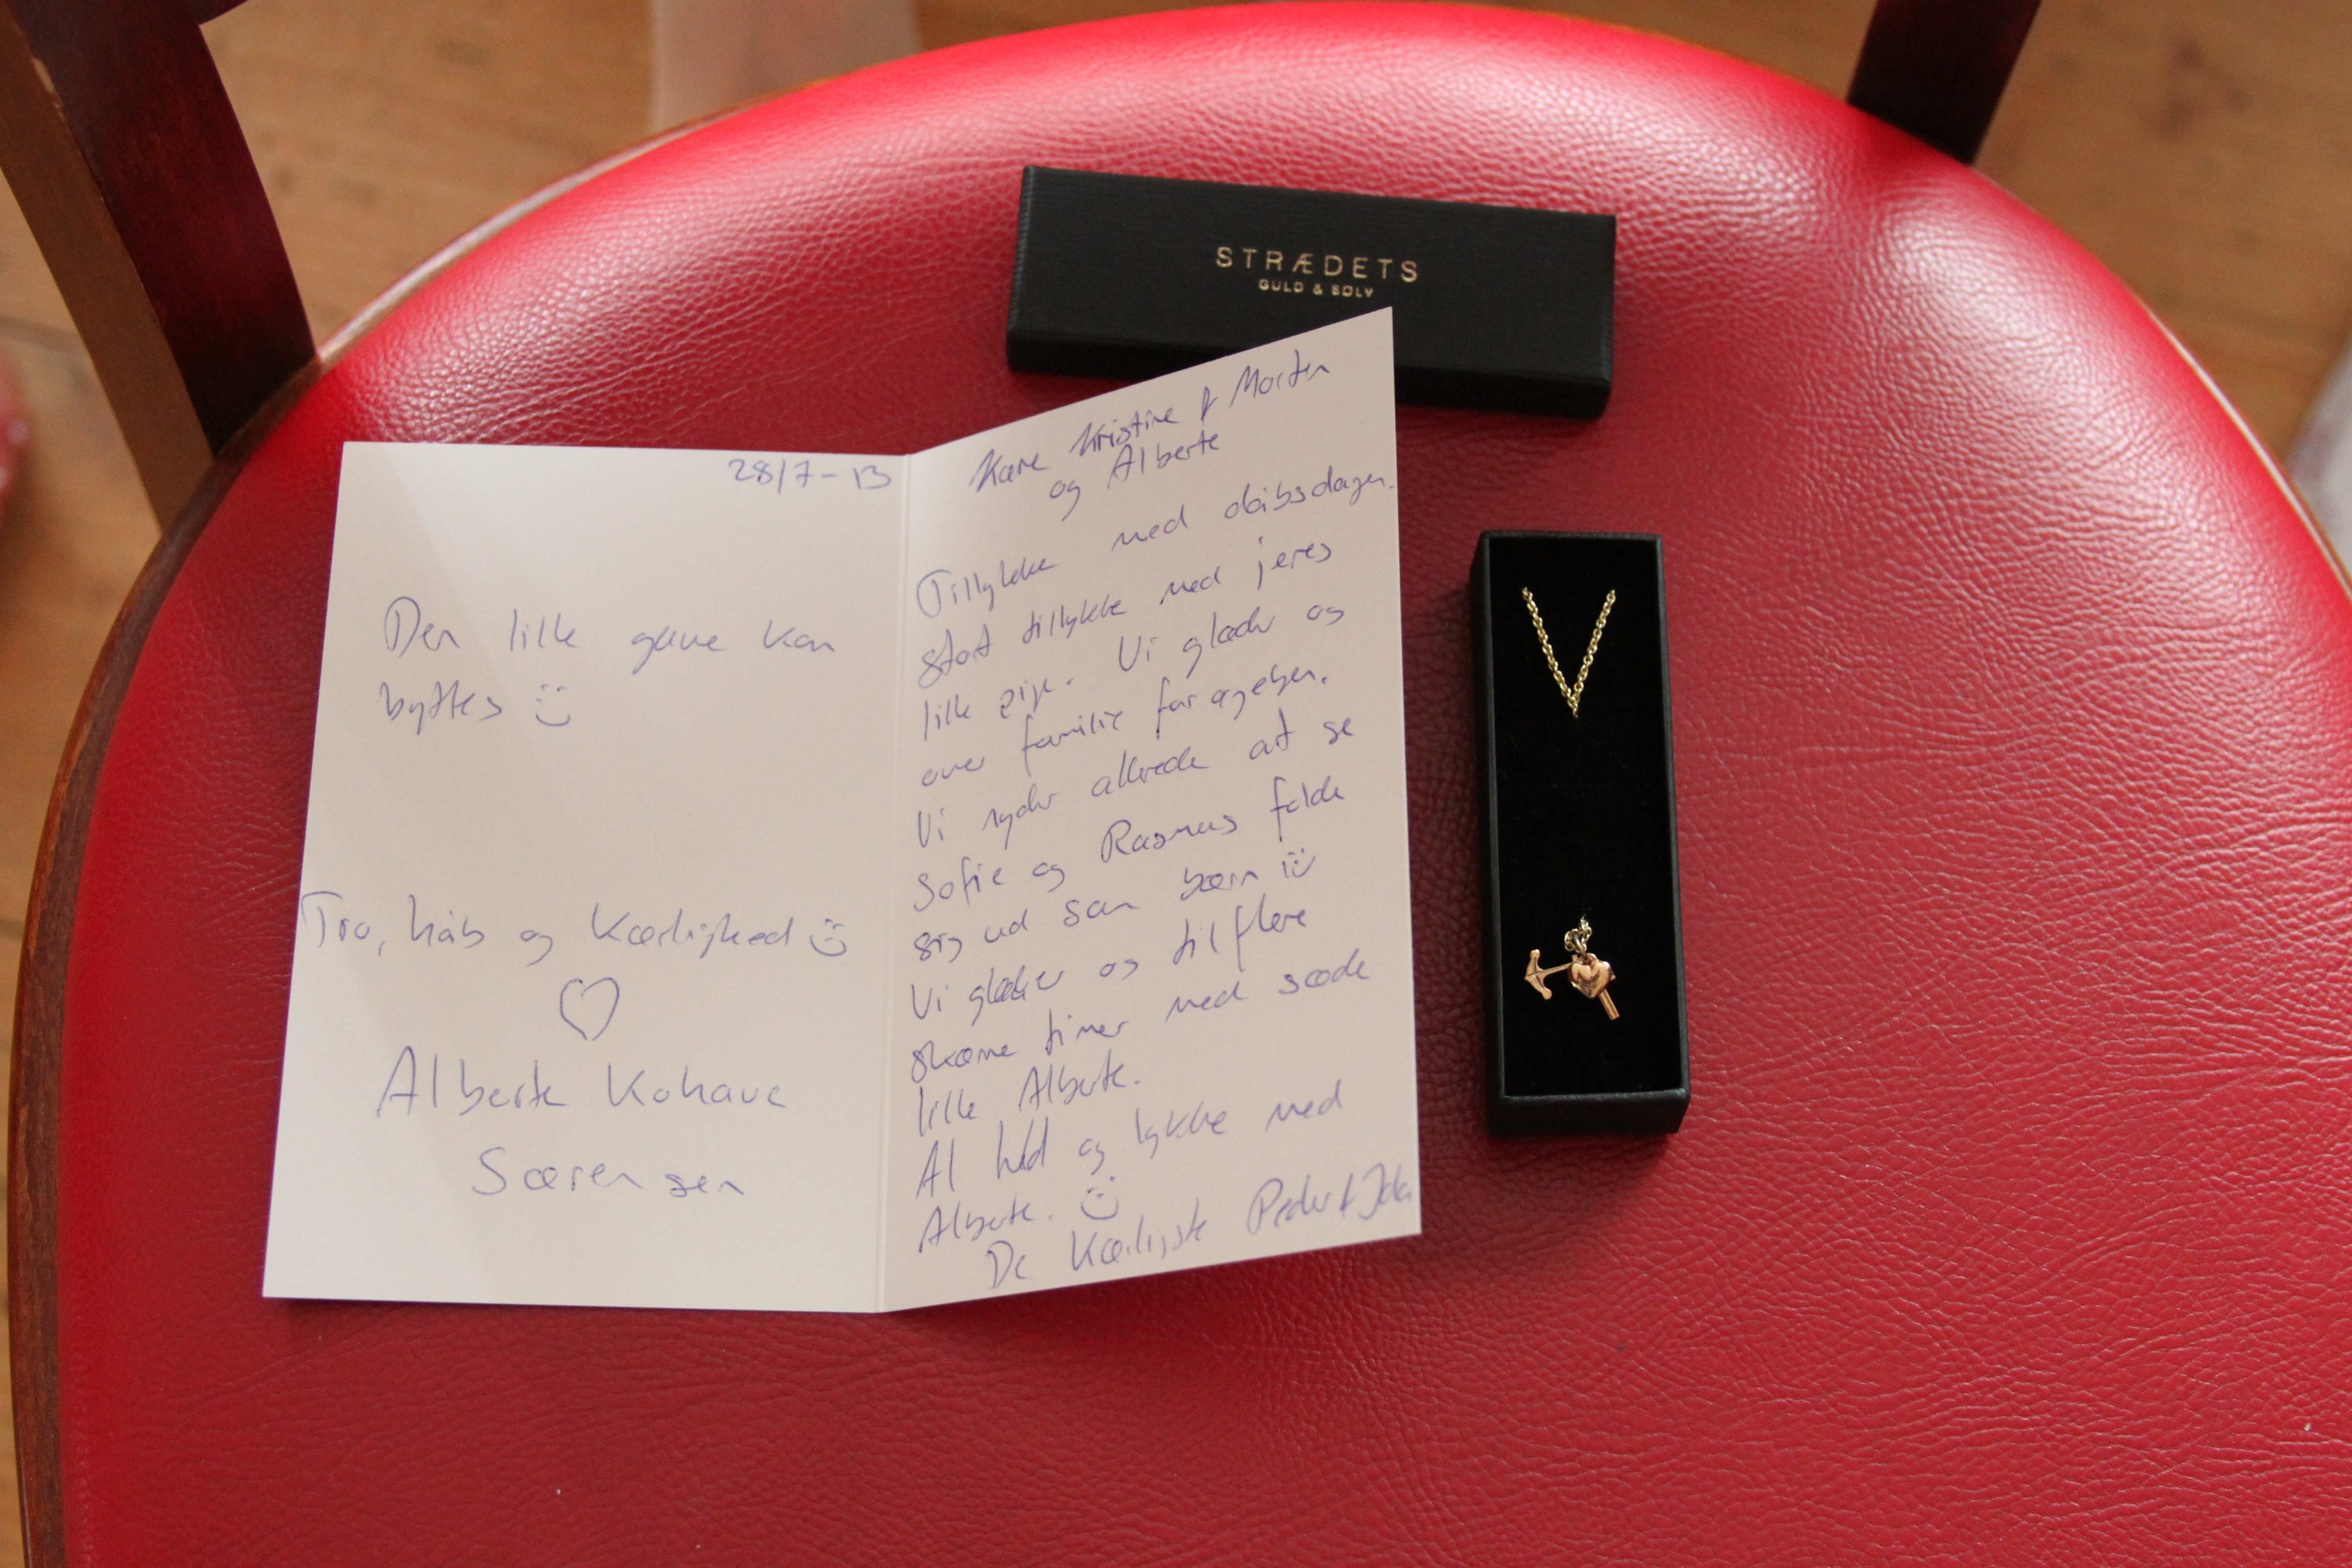 STRÆDETS
GULD & SØLV
28/7-13
Den lille gave kan
byttes
Tro, håb og Kærlighed
Alberte Kohave
Sørensen
Kære Kristine & Morten
og Alberte
Tillykke med dåbsdagen.
Stort tillykke med jeres
lille pige. Vi glæder os
over familie forøgelsen.
Vi nyder allerede at se
Sofie og Rasmus folde
sig ud som børn
Vi glæder os til flere
skønne timer med søde
lille Alberte.
Al held og lykke med
Alberte.
De Kærligste Peder &